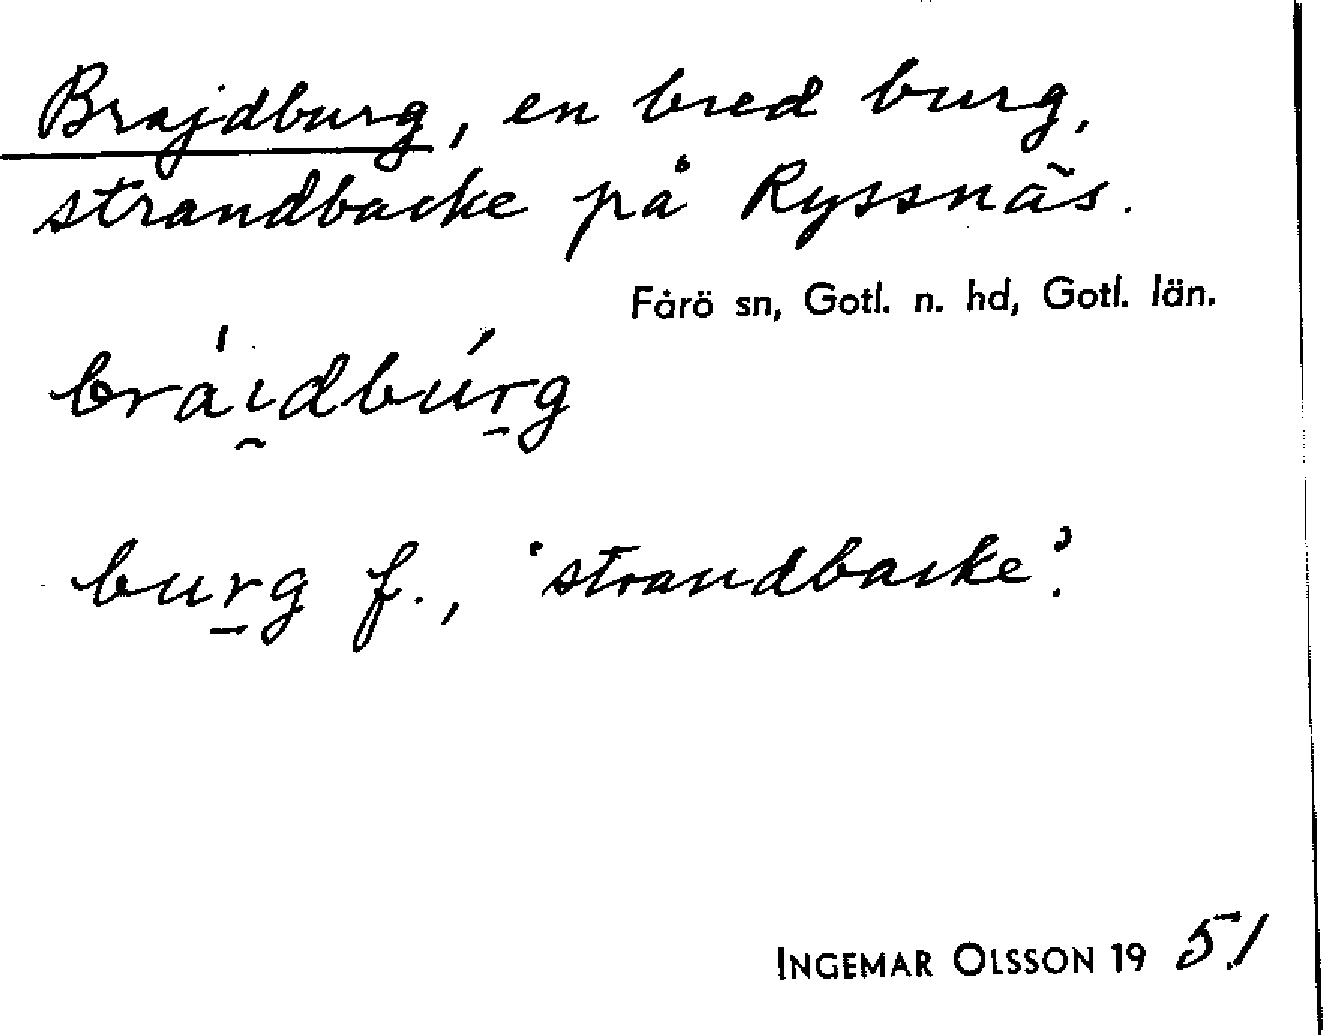 Brajdburg, en bred burg,
strandbacke på Ryssnäs.
Fårö sn, Gotl. n. hd, Gotl. län.
bráı̯dbúr̠g
bur̠g f., 'strandbacke'.
INGEMAR OLSSON 19 51